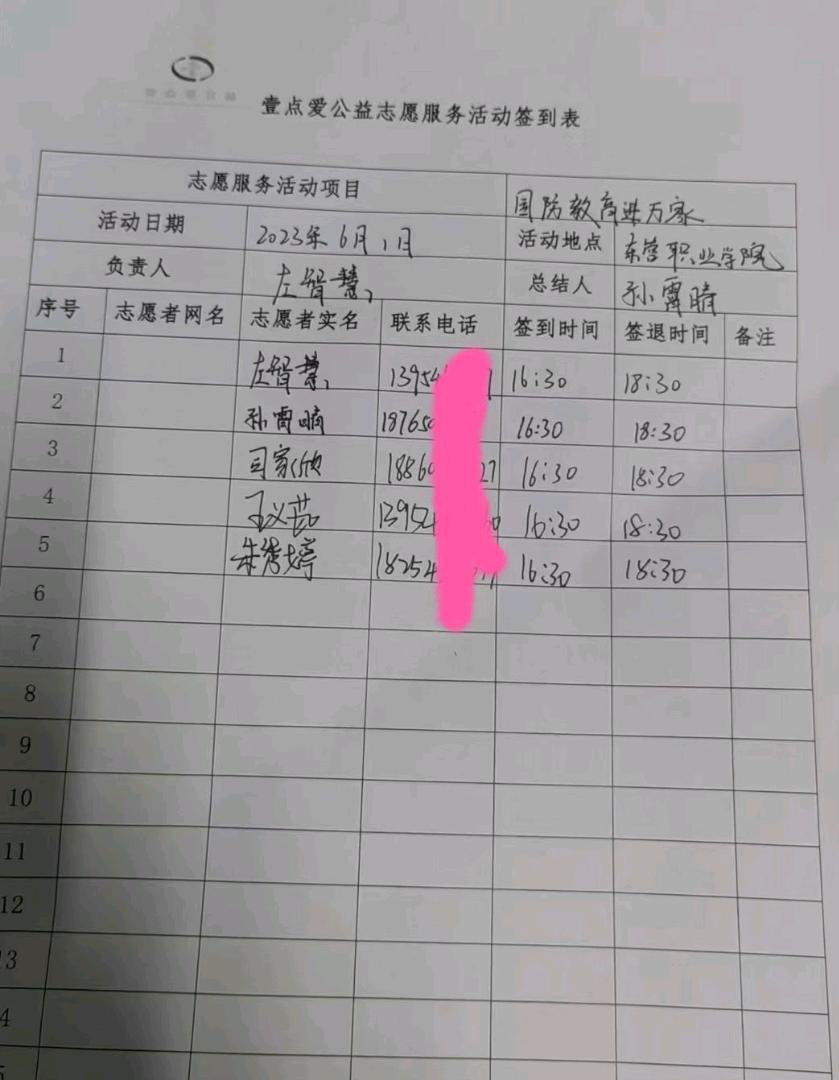 壹点爱公益志愿服务活动签到表
志愿服务活动项目 国防教育进万家
活动日期 2023年6月1日 活动地点 东营职业学院
负责人 左智慧 总结人 孙霄晴
序号 志愿者网名 志愿者实名 联系电话 签到时间 签退时间 备注
1 左智慧 1395 16:30 18:30
2 孙霄晴 1876 16:30 18:30
3 司家欣 188 27 16:30 18:30
4 王义茹 1395 16:30 18:30
5 朱秀婷 1825 16:30 18:30
6
7
8
9
10
11
12
13
4